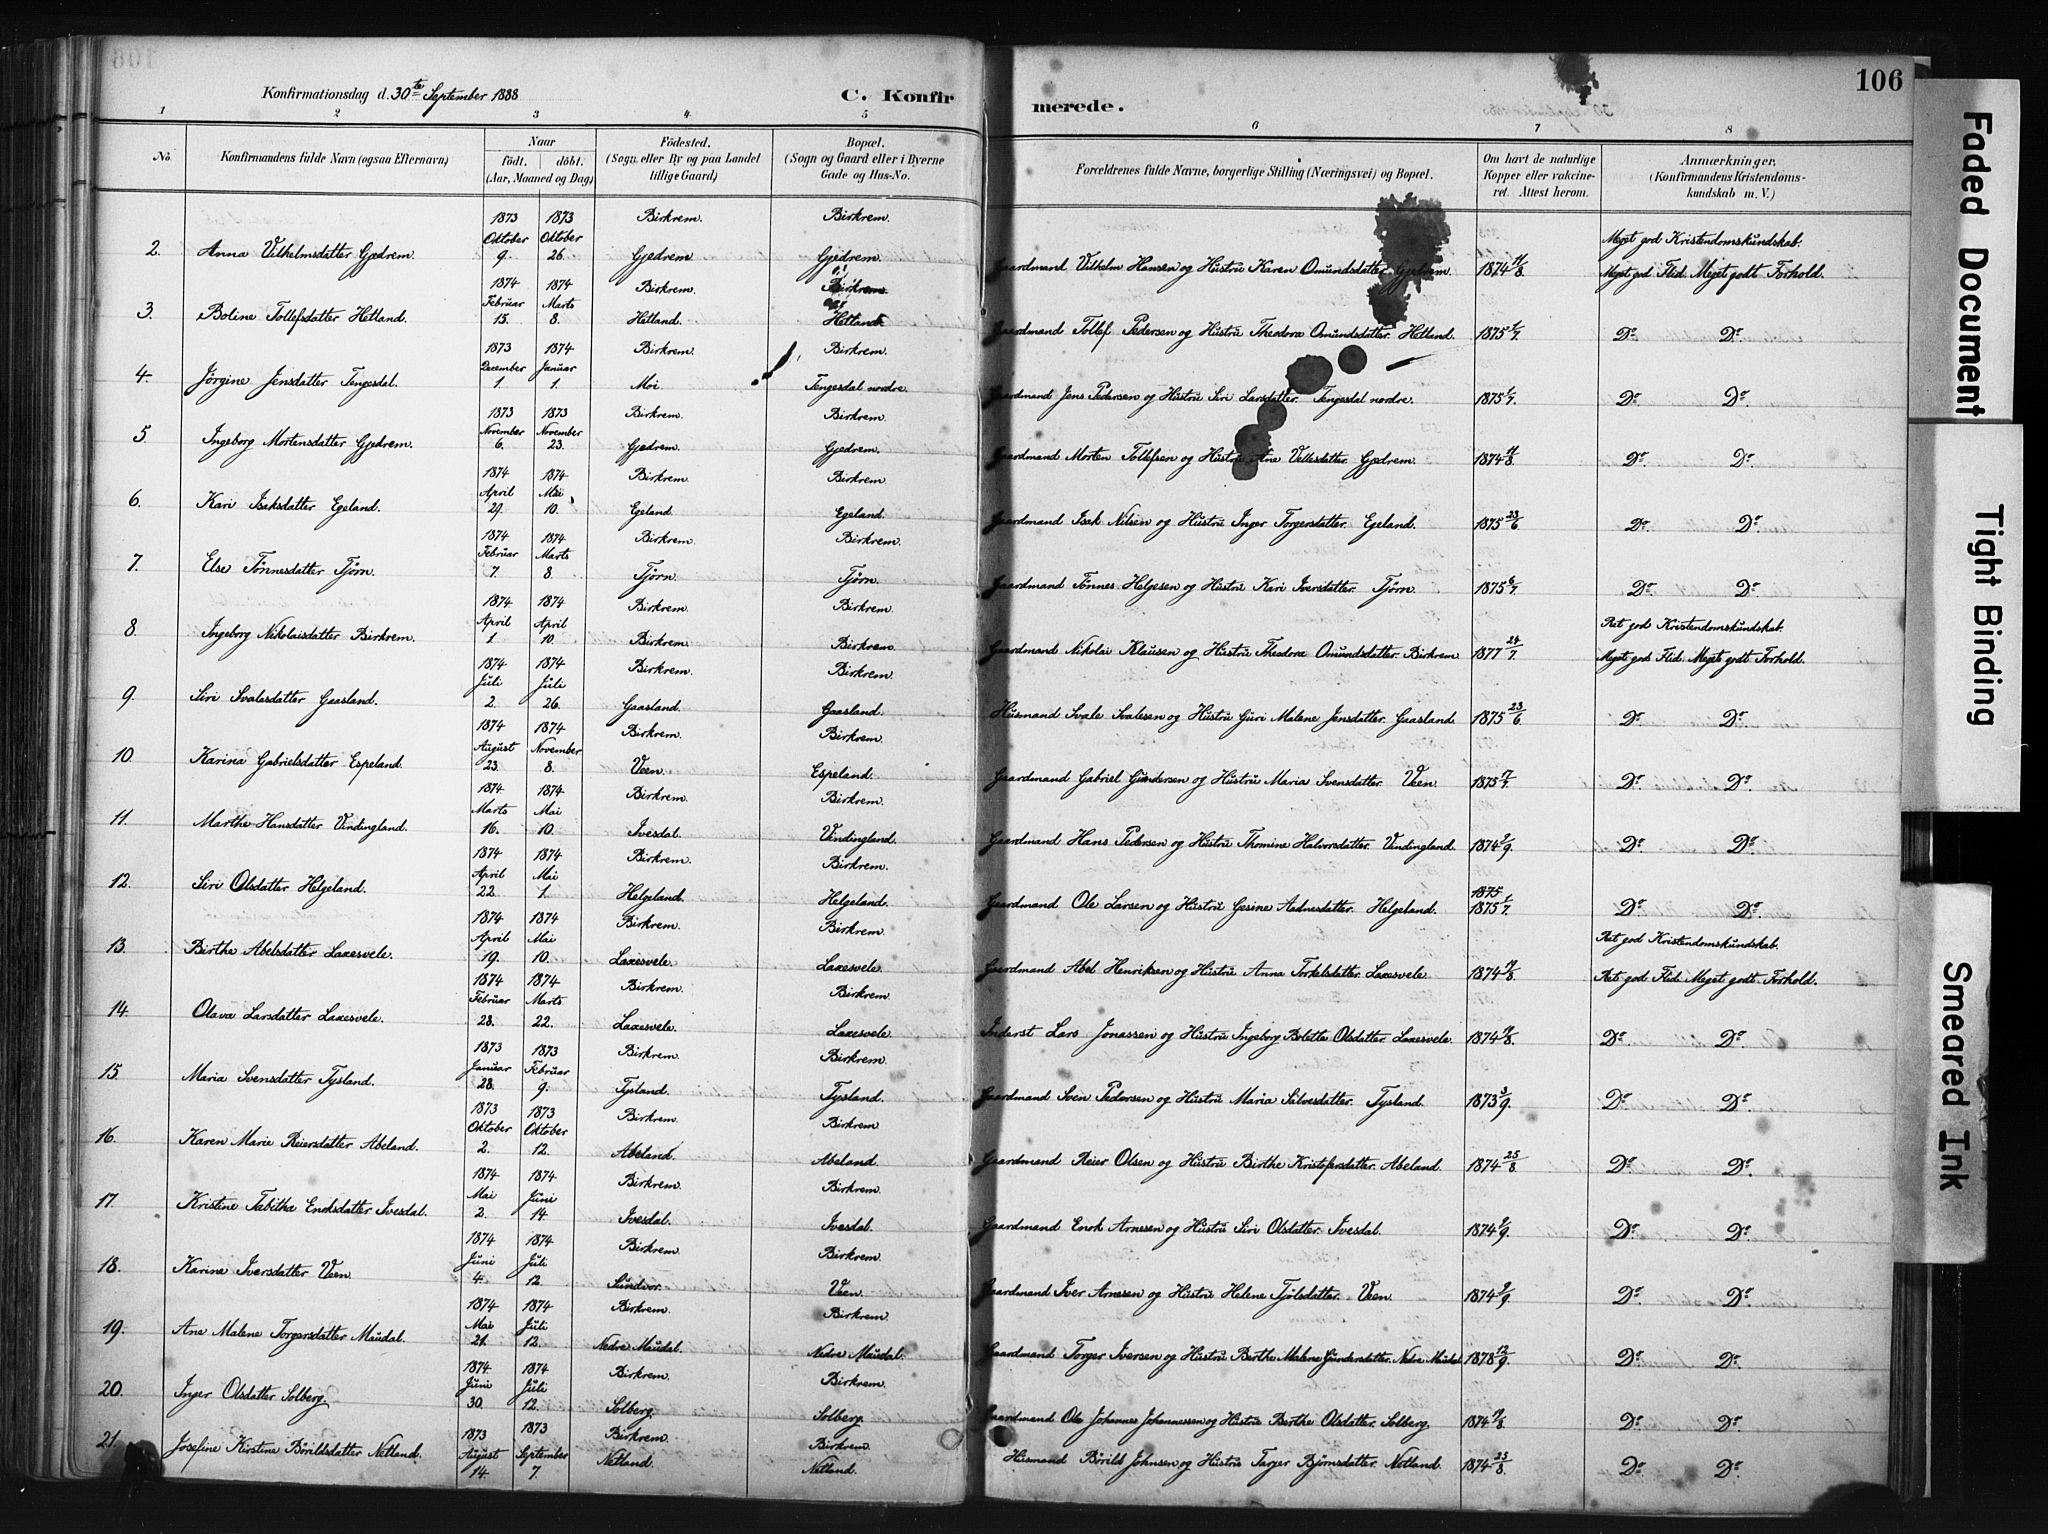 106
Konfirmationsdag d. 30te September 1888 C. Konfirmerede.
1 2 3 4 5 6 7 8
No. Konfirmandens fulde Navn (ogsaa Efternavn) Naar født. døbt. (Aar, Maaned og Dag) Fødested. (Sogn eller By og paa Landet tillige Gaard) Bopæl. (Sogn og Gaard eller i Byerne Gade og Hus-No. Forældrenes fulde Navne, borgerlige Stilling (Næringsvei) og Bopæl. Om havt de naturlige Kopper eller vakcineret. Attest herom. Anmærkninger, (Konfirmandens Kristendomskundskab m. V.)
2. Anna Vilhelmsdatter Gjedrem. 1873 Oktober 9. 1873 Oktober 26. Birkrem. Gjedrem. Birkrem. Gjedrem. Gaardmand Vilhelm Hansen og Hustru Karen Omundsdatter Gjedrem. 1874 11/8. Meget god Kristendomskundskab. Meget god Flid. Meget godt Forhold.
3. Boline Tollefsdatter Hetland. 1874 Februar 15. 1874 Marts 8. Birkrem. Hetland. Birkrem. Hetland. Gaardmand Tollef Pedersen og Hustru Theodora Omundsdatter. Hetland. 1875 1/7. Do. Do.
4. Jørgine Jensdatter Tengesdal. 1873 December 1. 1874 Januar 1. Birkrem. Moi Birkrem. Tengesdal nordre. Gaardmand Jens Pedersen og Hustru Siri Larsdatter. Tengesdal nordre. 1875 1/7. Do. Do.
5. Ingeborg Mortensdatter Gjedrem. 1873 November 6. 1873 November 23. Birkrem. Gjedrem. Birkrem. Gjedrem. Gaardmand Morten Tollefsen og Hustru Ane Vellesdatter Gjedrem. 1874 11/8. Do. Do.
6. Kari Isaksdatter Egeland. 1874 April 29. 1874 Mai 10. Birkrem. Egeland. Birkrem. Egeland. Gaardmand Isak Nilsen og Hustru Inger Torgersdatter. Egeland. 1875 23/6 Do. Do.
7. Else Tønnesdatter Tjørn. 1874 Februar 7. 1874 Marts 8. Birkrem. Tjørn. Birkrem. Tjørn. Gaardmand Tønnes Helgesen og Hustru Kari Iversdatter. Tjørn. 1875 6/7. Do. Do.
8. Ingeborg Nikolaisdatter Birkrem. 1874 April 1. 1874 April 10. Birkrem. Birkrem. Birkrem. Birkrem. Gaardmand Nikolai Klausen og Hustru Theodora Omundsdatter. Birkrem 1877 24/7. Ret god Kristendomskundskab. Meget god Flid. Meget godt Forhold.
9. Siri Svalesdatter Gaasland. 1874 Juli 2. 1874 Juli 26. Birkrem. Gaasland. Birkrem. Gaasland. Husmand Svale Svalesen og Hustru Guri Malene Jensdatter. Gaasland. 1875 23/6 Do. Do.
10. Karina Gabrielsdatter Espeland. 1874 August 23. 1874 November 8. Birkrem. Veen. Birkrem. Espeland. Gaardmand Gabriel Gundersen og Hustru Maria Svensdatter. Veen. 1875 17/7. Do. Do.
11. Marthe Hansdatter Vindingland. 1874 Marts 16. 1874 Mai 10. Birkrem. Ivesdal. Birkrem. Vindingland. Gaardmand Hans Pedersen og Hustru Thomine Halvorsdatter. Vindingland. 1874 2/9. Do. Do.
12. Siri Olsdatter Helgeland. 1874 April 22. 1874 Mai 1. Birkrem. Helgeland. Birkrem. Helgeland. Gaardmand Ole Larsen og Hustru Gesine Aadnesdatter. Helgeland. 1875 1875 1/7. Do. Do.
13. Birthe Abelsdatter Laxesvele. 1874 April 19. 1874 Mai 10. Birkrem. Laxesvele. Birkrem. Laxesvele. Gaardmand Abel Henriksen og Hustru Anna Torkelsdatter. Laxesvele 1874 17/8 Ret god Kristendomskundskab. Ret god Flid. Meget godt Forhold.
14. Olava Larsdatter Laxesvele. 1874 Februar 28. 1874 Marts 22. Birkrem. Laxesvele. Birkrem. Laxesvele. Inderst Lars Jonassen og Hustru Ingeborg Bolette Olsdatter. Laxesvele. 1874 17/8. Do. Do.
15. Maria Svensdatter Tysland. 1873 Januar 28. 1873 Februar 9. Birkrem. Tysland. Birkrem. Tysland. Gaardmand Sven Pedersen og Hustru Maria Salvesdatter. Tysland. 1873 3/9. Do. Do.
16. Karen Marie Reiersdatter Abeland. 1873 Oktober 2. 1873 Oktober 12. Birkrem. Abeland. Birkrem. Abeland. Gaardmand Reier Olsen og Hustru Birthe Kristofersdatter. Abeland. 1874 25/8. Do. Do.
17. Kristine Tabitha Enoksdatter Ivesdal. 1874 Mai 2. 1874 Juni 14. Birkrem. Ivesdal. Birkrem. Ivesdal. Gaardmand Enok Arnesen og Hustru Siri Olsdatter. Ivesdal. 1874 2/9. Do. Do.
18. Karine Iversdatter Veen. 1874 Juni 4. 1874 Juli 12. Birkrem. Sundvor. Birkrem. Veen. Gaardmand Iver Arnesen og Hustru Helene Tjølsdatter. Veen. 1874 2/9. Do. Do.
19. Ane Malene Torgersdatter Maudal. 1874 Mai 21. 1874 Juli 12. Birkrem. Nedre Maudal. Birkrem. Nedre Maudal. Gaardmand Torger Iversen og Hustru Berthe Malene Gundersdatter. Nedre Maudal 1878 12/9. Do. Do.
20. Inger Olsdatter Solberg. 1874 Juni 30. 1874 Juli 12. Birkrem. Solberg. Birkrem. Solberg. Gaardmand Ole Johannes Johannessen og Hustru Berthe Olsdatter. Solberg 1874 17/8. Do. Do.
21. Josefine Kirstine Børildsdatter Netland. 1873 August 14. 1873 September 7. Birkrem. Netland. Birkrem. Netland. Husmand Børild Johnsen og Hustru Tarjer Bjørnsdatter. Netland. 1874 25/8. Do. Do.
Faded Document
Tight Binding
Smeared Ink